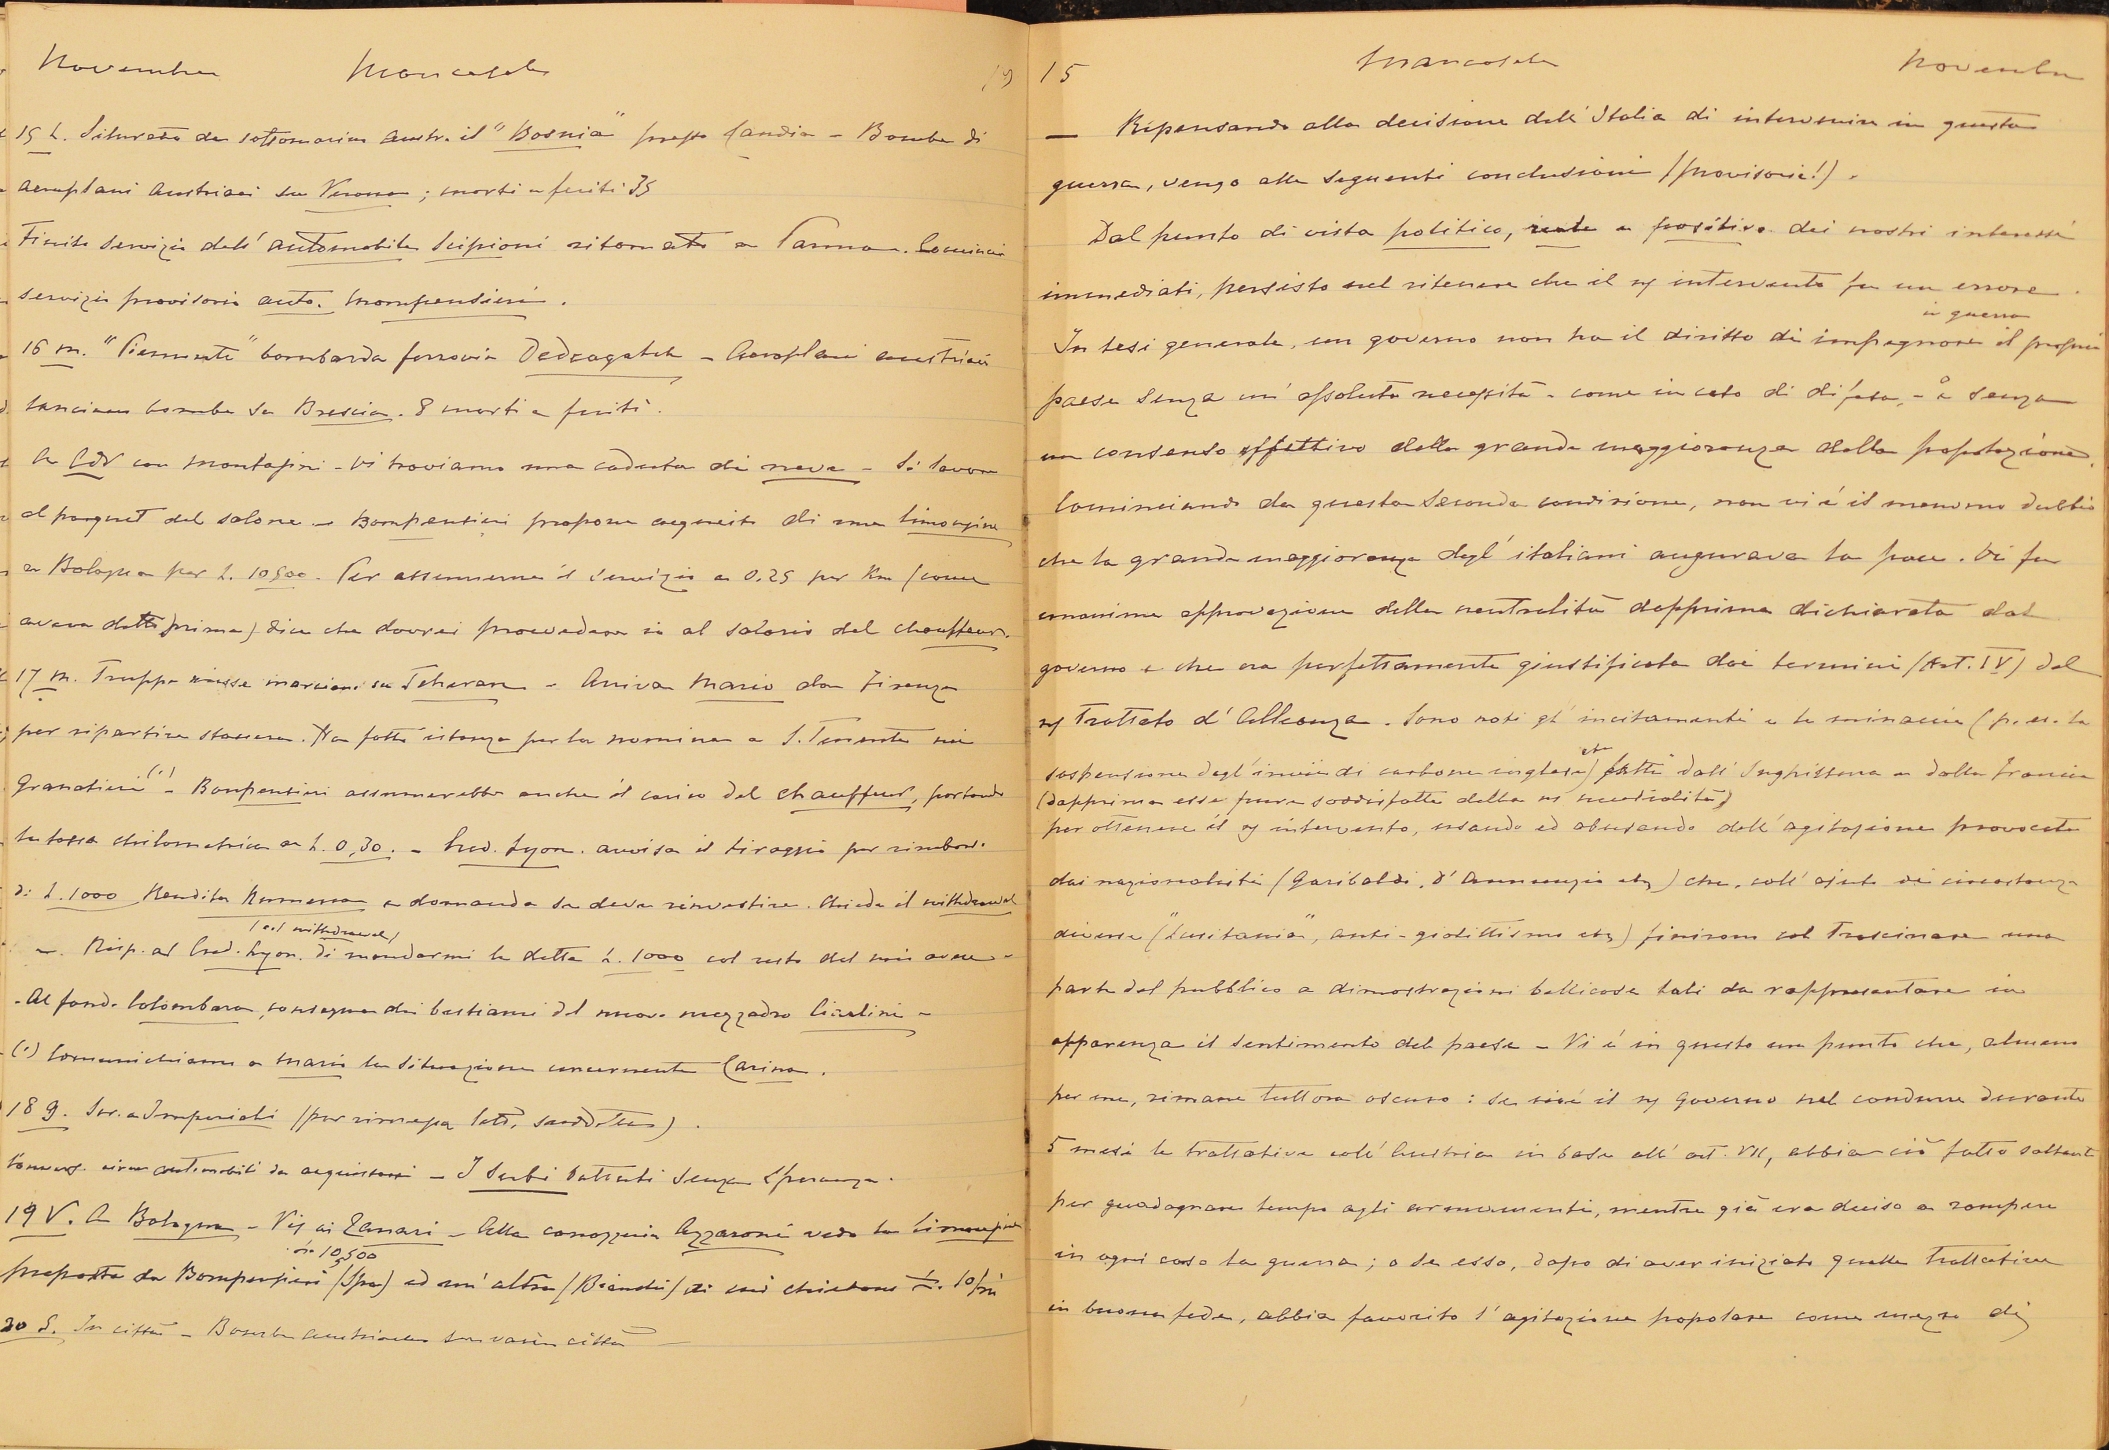 Novembre Moncasale 19
15 L. Silurato da sottomarino austr. il "Bosnia" presso Candia - Bombe di
aeroplani austriaci su Verona; morti e feriti 35
Finito servizio dell'automobile Scipioni ritornato a Parma. Comincia
servizio provvisorio auto. Bompensieri.
16 m. "Piemonte" bombarda ferrovia Dedeagatch - Aeroplani austriaci
lanciano bombe su Brescia. 8 morti e feriti.
A CdV con Montafini - Vi troviamo una caduta di neve - Si lavora
al parquet del salone - Bompensieri propone acquisto di una limousine
a Bologna per L. 10500. Per assumerne il servizio a 0.25 per Km (come
aveva detto prima) dice che dovrei provvedere io al salario del chauffeur.
17 m. Truppe russe marciano su Teheran - Arriva Mario da Firenze
per ripartire stasera. Ha fatto istanza per la nomina a S. Tenente nei
Granatieri (1) - Bompensieri assumerebbe anche il carico del chauffeur, portando
la tassa chilometrica a L. 0,30. - Cred. Lyon. avvisa il tiraggio per rimbor.
di L. 1000 Rendita Rumena e domanda se deve rinvestire. Chiede il withdrawal
- Risp. al Cred. Lyon. (col withdrawal) di mandarmi le dette L. 1000 col resto del mio avere -
- Al fond. Colombara, consegna di bestiami del nuovo mezzadro
(1) Comunichiamo a Mario la situazione concernente Carina.
18 g. Scr. a Imperiali (per rimessa
circa automobili da acquistarsi - I Serbi battuti senza speranza.
19 V. A Bologna - Vis. ai Zanasi - Alla carrozzeria Azzaroni vedo la limousine
proposta da Bompensieri (Spa) a 10,500 ed un'altra (Bianchi) di cui chiedono L. 10/m
20 S. In città - Bombe austriache su varie città
15 Moncasale Novembre
— Ripensando alla decisione dell'Italia di intervenire in questa
guerra, vengo alle seguenti conclusioni (provvisorie!).
Dal punto di vista politico, reale e positivo dei nostri interessi
immediati, persisto nel ritenere che il ns intervento fu un errore.
In tesi generale, un governo non ha il diritto di impegnare in guerra il proprio
paese senza un'assoluta necessità - come in caso di difesa, - o senza
un consenso effettivo della grande maggioranza della popolazione.
Cominciando da questa seconda condizione, non vi è il menomo dubbio
che la grande maggioranza degl'italiani augurava la pace. Vi fu
unanime approvazione della neutralità dapprima dichiarata dal
governo e che era perfettamente giustificata dai termini (Art. IV) del
ns Trattato d'Alleanza. Sono noti gl'incitamenti e le minacie (p. es. la
sospensione degl'invii di carbone inglese) etc fatti dall'Inghilterra e dalla Francia
(dapprima esse pure soddisfatte della ns neutralità)
per ottenere il ns intervento, usando ed abusando dell'agitazione provocata
dai nazionalisti (Garibaldi, d'Annunzio etc) che, coll'ajuto di circostanze
diverse ("Lusitania", anti-giolittismo etc) finirono col trascinare una
parte del pubblico a dimostrazioni bellicose tali da rappresentare in
apparenza il sentimento del paese - Vi è in questo un punto che, almeno
per me, rimane tuttora oscuro: se cioè il ns Governo nel condurre durante
5 mesi le trattative coll'Austria in base all'art. VII, abbia ciò fatto soltanto
per guadagnare tempo agli armamenti, mentre già era deciso a rompere
in ogni caso la guerra; o se esso, dopo di aver iniziato quelle trattative
in buona fede, abbia favorito l'agitazione popolare come mezzo di